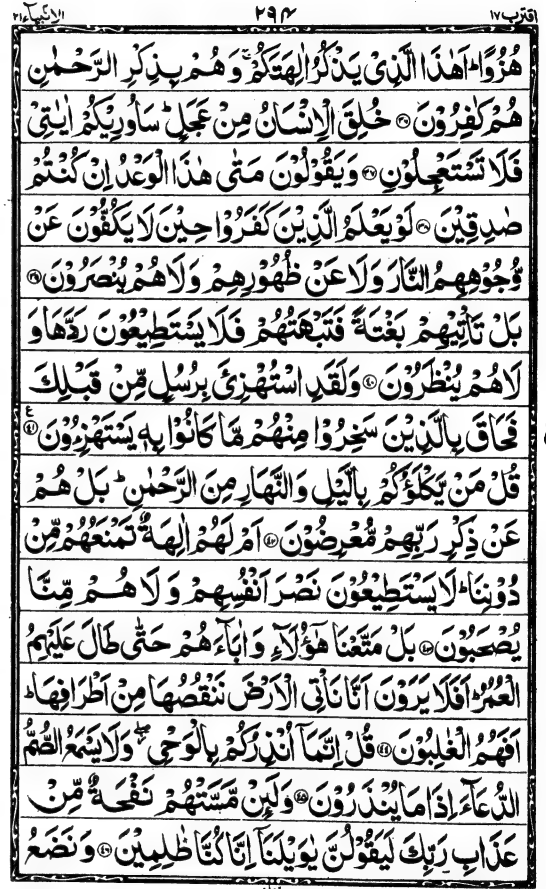 اقترب ۱۷ ۲۹۴ الانبیآء ۲۱
هُزُوًا ؕ اَهٰذَا الَّذِیْ یَذْكُرُ اٰلِهَتَكُمْ ۚ وَهُمْ بِذِكْرِ الرَّحْمٰنِ
هُمْ كٰفِرُوْنَ ﴿۳۶﴾ خُلِقَ الْاِنْسَانُ مِنْ عَجَلٍ ؕ سَاُورِیْكُمْ اٰیٰتِیْ
فَلَا تَسْتَعْجِلُوْنِ ﴿۳۷﴾ وَیَقُوْلُوْنَ مَتٰی هٰذَا الْوَعْدُ اِنْ كُنْتُمْ
صٰدِقِیْنَ ﴿۳۸﴾ لَوْ یَعْلَمُ الَّذِیْنَ كَفَرُوْا حِیْنَ لَا یَكُفُّوْنَ عَنْ
وُّجُوْهِهِمُ النَّارَ وَلَا عَنْ ظُهُوْرِهِمْ وَلَا هُمْ یُنْصَرُوْنَ ﴿۳۹﴾
بَلْ تَاْتِیْهِمْ بَغْتَةً فَتَبْهَتُهُمْ فَلَا یَسْتَطِیْعُوْنَ رَدَّهَا وَ
لَا هُمْ یُنْظَرُوْنَ ﴿۴۰﴾ وَلَقَدِ اسْتُهْزِئَ بِرُسُلٍ مِّنْ قَبْلِكَ
فَحَاقَ بِالَّذِیْنَ سَخِرُوْا مِنْهُمْ مَّا كَانُوْا بِهٖ یَسْتَهْزِءُوْنَ ﴿۴۱﴾ ع
قُلْ مَنْ یَّكْلَؤُكُمْ بِالَّیْلِ وَالنَّهَارِ مِنَ الرَّحْمٰنِ ؕ بَلْ هُمْ
عَنْ ذِكْرِ رَبِّهِمْ مُّعْرِضُوْنَ ﴿۴۲﴾ اَمْ لَهُمْ اٰلِهَةٌ تَمْنَعُهُمْ مِّنْ
دُوْنِنَا ؕ لَا یَسْتَطِیْعُوْنَ نَصْرَ اَنْفُسِهِمْ وَلَا هُمْ مِّنَّا
یُصْحَبُوْنَ ﴿۴۳﴾ بَلْ مَتَّعْنَا هٰۤؤُلَآءِ وَاٰبَآءَهُمْ حَتّٰی طَالَ عَلَیْهِمُ
الْعُمُرُ ؕ اَفَلَا یَرَوْنَ اَنَّا نَاْتِی الْاَرْضَ نَنْقُصُهَا مِنْ اَطْرَافِهَا ؕ
اَفَهُمُ الْغٰلِبُوْنَ ﴿۴۴﴾ قُلْ اِنَّمَاۤ اُنْذِرُكُمْ بِالْوَحْیِ ۖ وَلَا یَسْمَعُ الصُّمُّ
الدُّعَآءَ اِذَا مَا یُنْذَرُوْنَ ﴿۴۵﴾ وَلَئِنْ مَّسَّتْهُمْ نَفْحَةٌ مِّنْ
عَذَابِ رَبِّكَ لَیَقُوْلُنَّ یٰوَیْلَنَاۤ اِنَّا كُنَّا ظٰلِمِیْنَ ﴿۴۶﴾ وَنَضَعُ